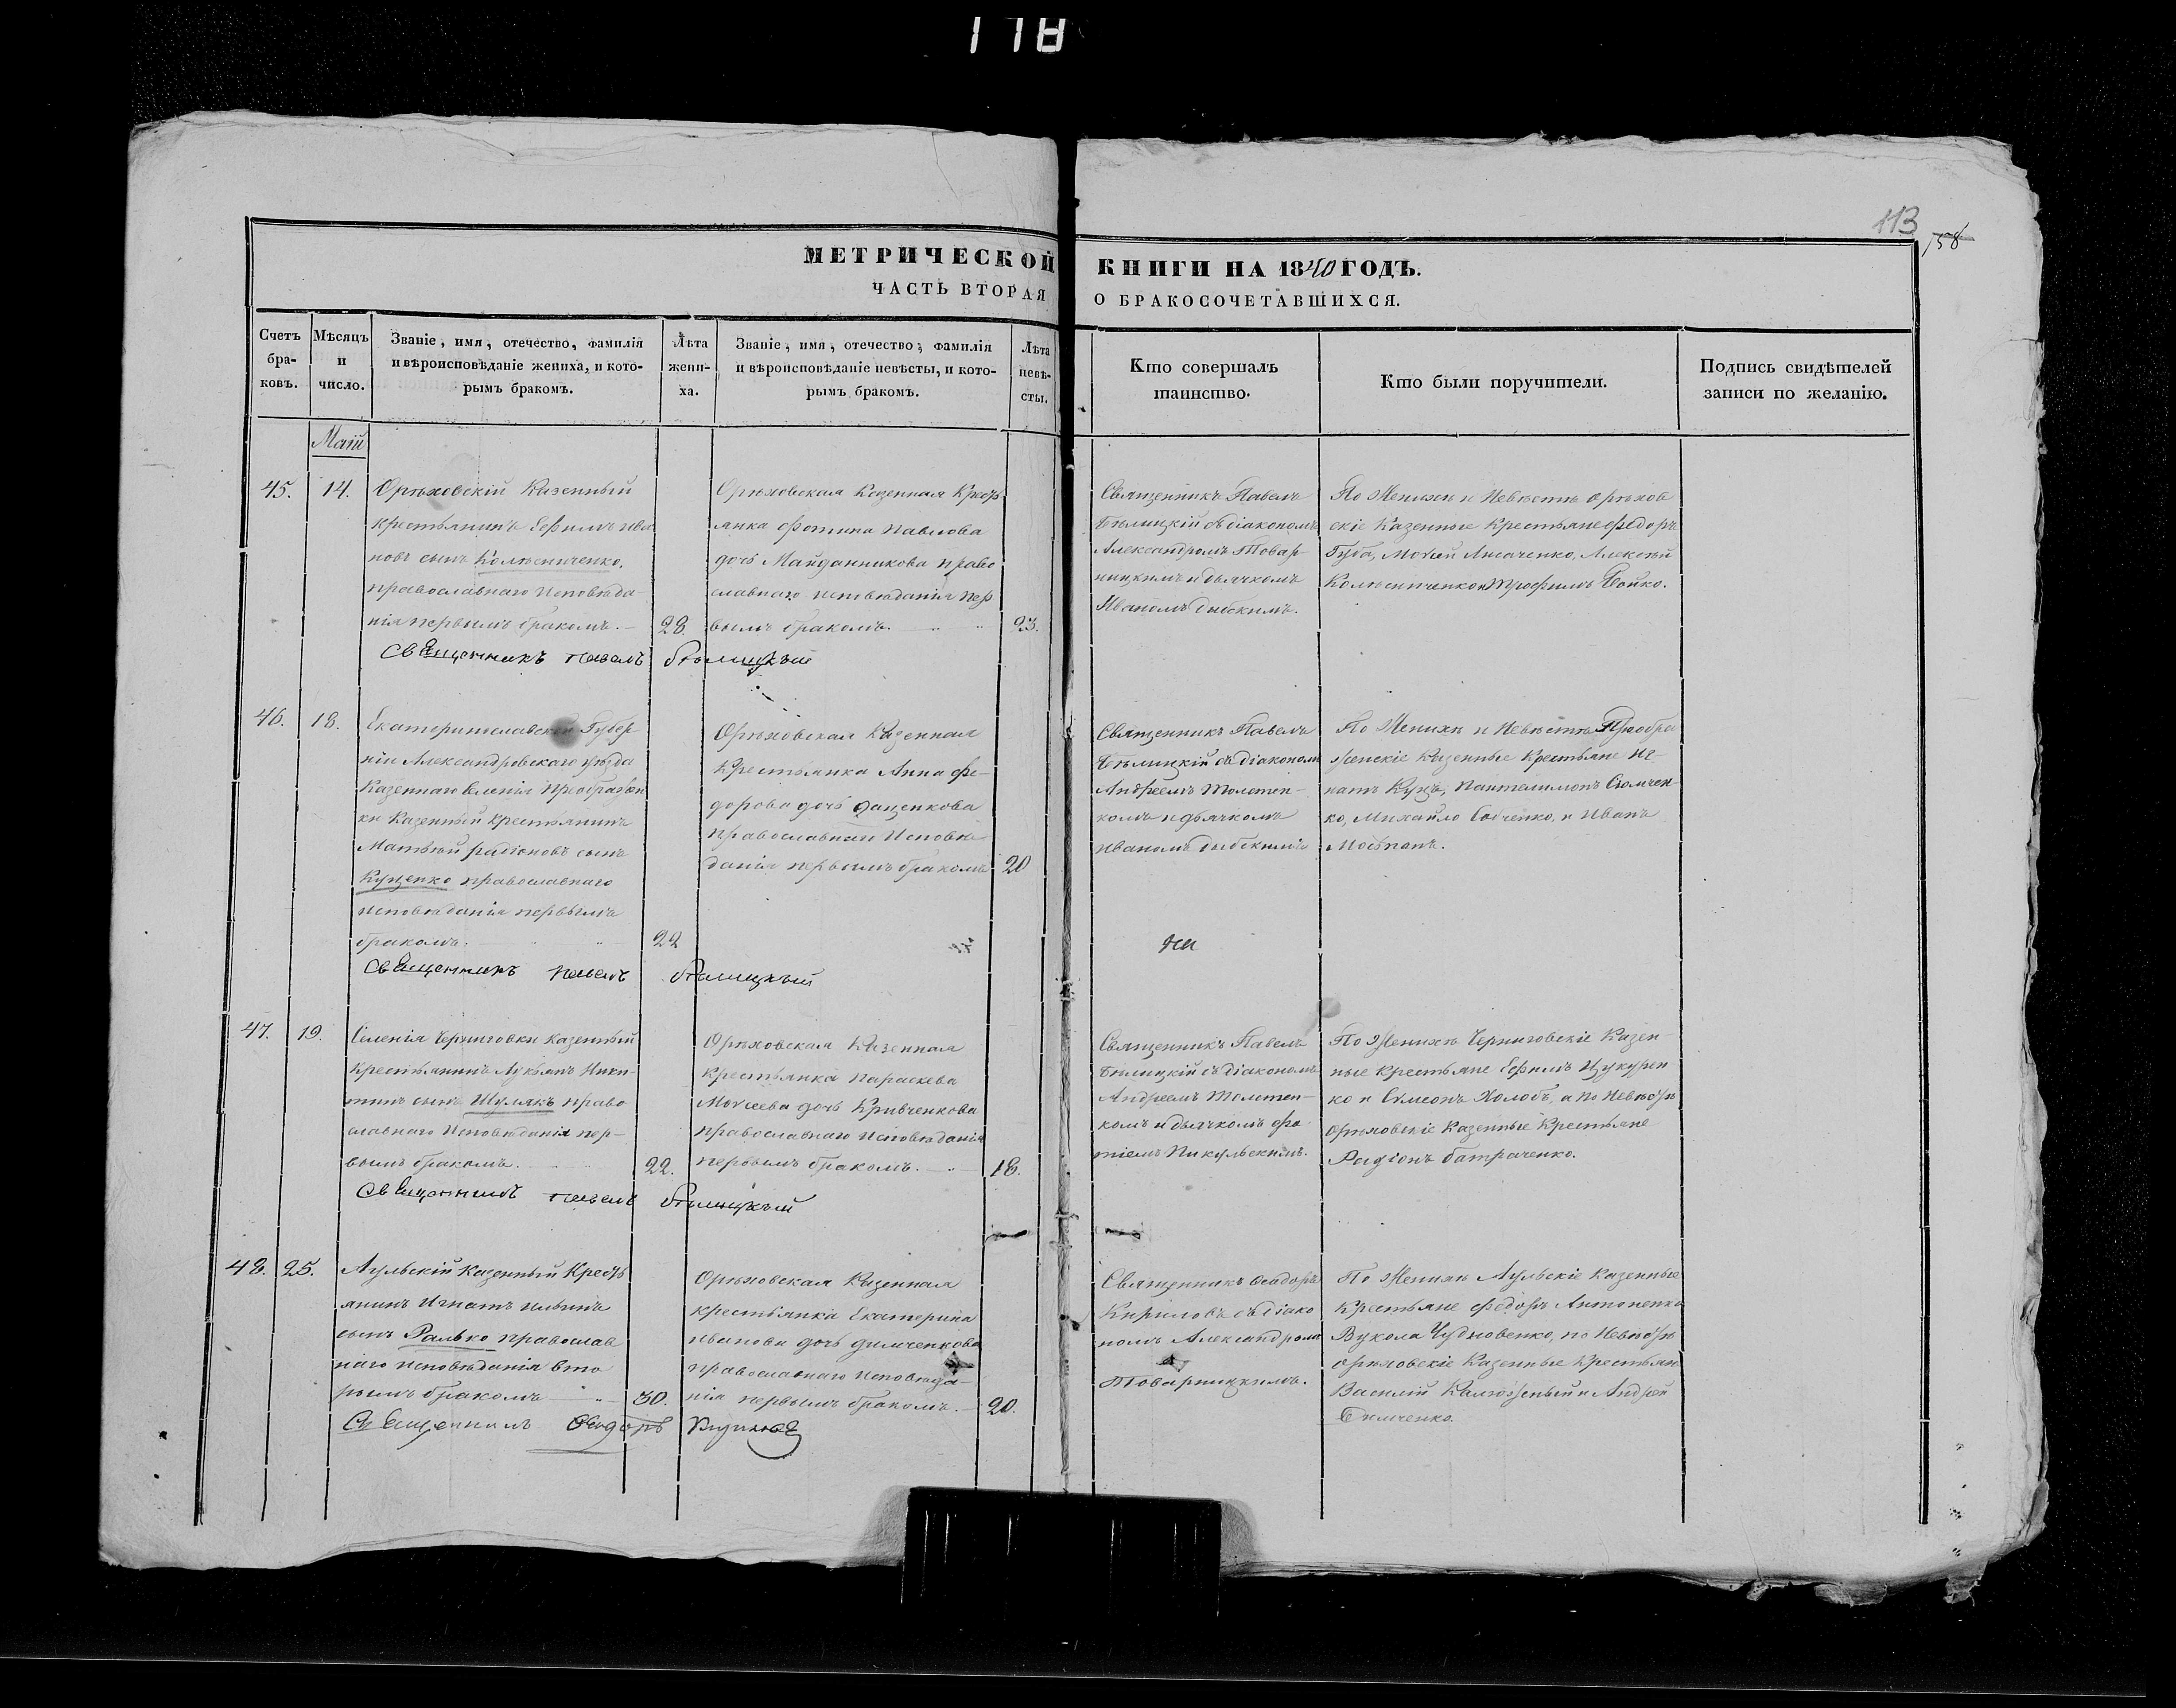 178
113
158
МЕТРИЧЕСКОЙ КНИГИ НА 1840 ГОДЪ.
ЧАСТЬ ВТОРАЯ О БРАКОСОЧЕТАВШИХСЯ.
Счетъ
бра-
ковъ.
Мѣсяцъ
и
число.
Званіе, имя, отечество, фамилія
и вѣроисповѣданіе жениха, и кото-
рымъ бракомъ.
Лѣта
жени-
ха.
Званіе, имя, отечество, фамилія
и вѣроисповѣданіе невѣсты, и кото-
рымъ бракомъ.
Лѣта
невѣ-
сты.
Кто совершалъ
таинство.
Кто были поручители.
Подпись свидѣтелей
записи по желанію.
Маій
45.
14.
Орѣховскій Казенный
крестьянинъ Ефимъ Ива
новъ сынъ Колѣсниченко,
православнаго Исповѣда-
нія первымъ бракомъ.
28.
Орѣховская Казенная Кресть
янка Фотина Павлова
дочь Майданникова право
славнаго исповѣданія пер
вымъ бракомъ.
23.
Священникъ Павелъ
Бѣлицкій съ діакономъ
Александромъ Товар-
ницкимъ и дьячкомъ
Иваномъ
По Женихѣ и Невѣстѣ Орѣхов
скіе Казенные Крестьяне Федоръ
Губа, Моѵсей Лисаченко, Алексѣй
Колѣсниченко и Трофимъ Бойко.
Священникъ Павелъ Бѣлицкый
46.
18.
Екатеринославской Губер-
ніи Александровскаго уѣзда
Казеннаго селенія Преображен
ки Казенный крестьянинъ
Матвѣй Радіоновъ сынъ
Куценко православнаго
исповѣданія первымъ
бракомъ.
22
Орѣховская Казенная
Крестьянка Анна Фе-
дорова дочь
православнаго Исповѣ
данія первымъ бракомъ
20
Священникъ Павелъ
Бѣлицкій съ діакономъ
Андреемъ
комъ и дьячкомъ
Иваномъ
По Женихѣ и Невѣстѣ Преобра
женскіе Казенные Крестьяне Иг-
натъ Куцъ, Пантелимонъ
ко, Михайло и Иванъ
Священникъ Павелъ Бѣлицкый
47.
19.
Селенія Черниговки казенный
Крестьянинъ Лукьянъ Ники-
тинъ сынъ Шулякъ право
славнаго Исповѣданія пер-
вымъ бракомъ.
22.
Орѣховская Казенная
крестьянка Параскева
Моѵсеева дочь Кривченкова
православнаго Исповѣданія
первымъ бракомъ.
18.
Священникъ Павелъ
Бѣлицкій съ діакономъ
Андреемъ
комъ и дьячкомъ Фо
тіемъ Пикульскимъ.
По Женихѣ Черниговскіе Казен-
ные крестьяне Ефимъ Цукурен
ко и Сѵмеонъ Холодъ, а по Невѣстѣ
Орѣховскіе Казенные Крестьяне
Радіонъ Батраченко.
Священникъ Павелъ Бѣлицкый
48.
25.
Аульскій Казенный Кресть
янинъ Игнатъ Ильинъ
сынъ Ралько православ
наго исповѣданія вто
рымъ бракомъ
30.
Орѣховская Казенная
крестьянка Екатерина
Иванова дочь Димченкова
православнаго исповѣда-
нія первымъ бракомъ.
20.
Священникъ Ѳеодоръ
Кириловъ съ діако
номъ Александромъ
Товарницкимъ.
По Женихѣ Аульскіе Казенные
крестьяне Федоръ Антоненко
Вукола Чудновенко, по Невѣстѣ
Орѣховскіе Казенные Крестьяне
Василій и Андрей
Священникъ Ѳеодоръ Кириловъ